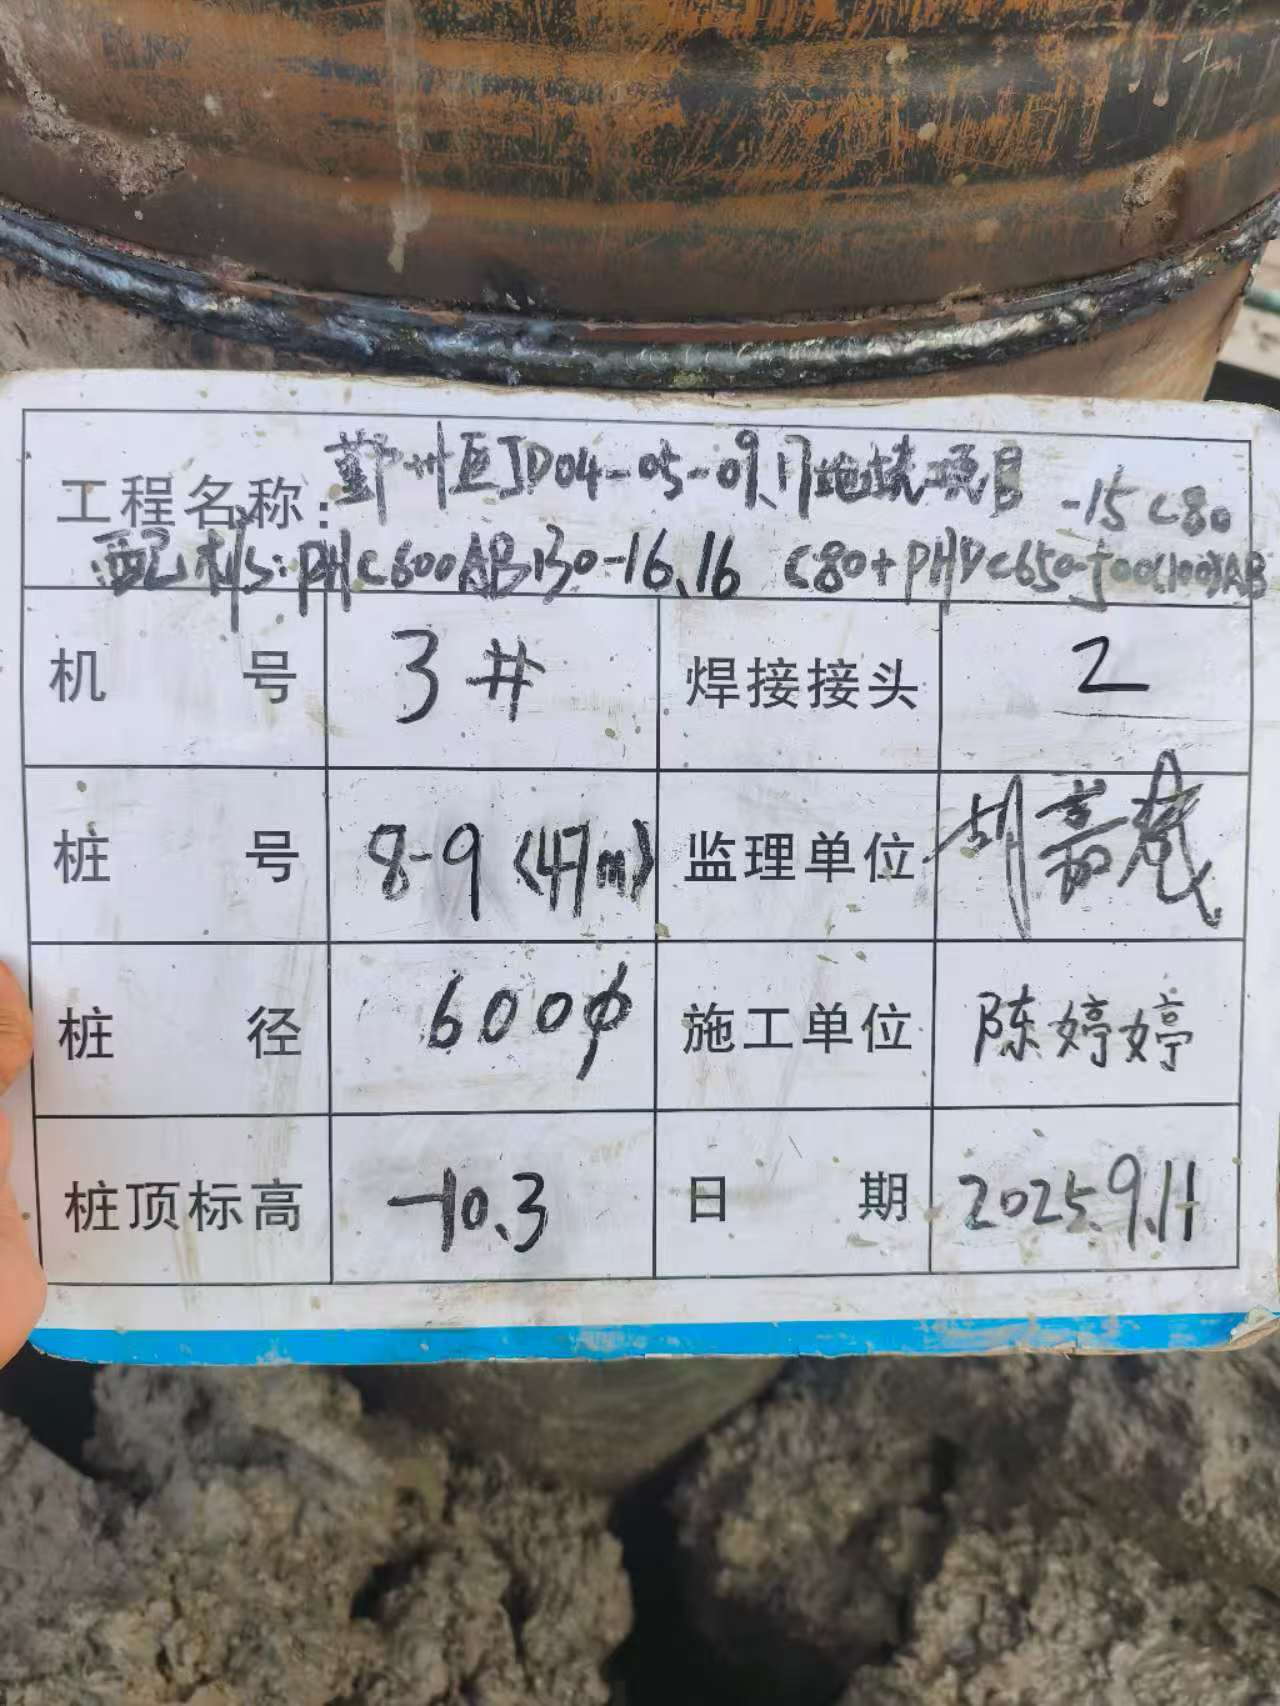 工程名称: 鄞州区JD04-05-09、17地块项目
配桩: PHC600AB130-16、16 C80+PHDC650-500(100)AB-15 C80
机号 3# 焊接接头 2
桩号 8-9 (47m) 监理单位 胡嘉
桩径 600φ 施工单位 陈婷婷
桩顶标高 -10.3 日期 2025.9.11